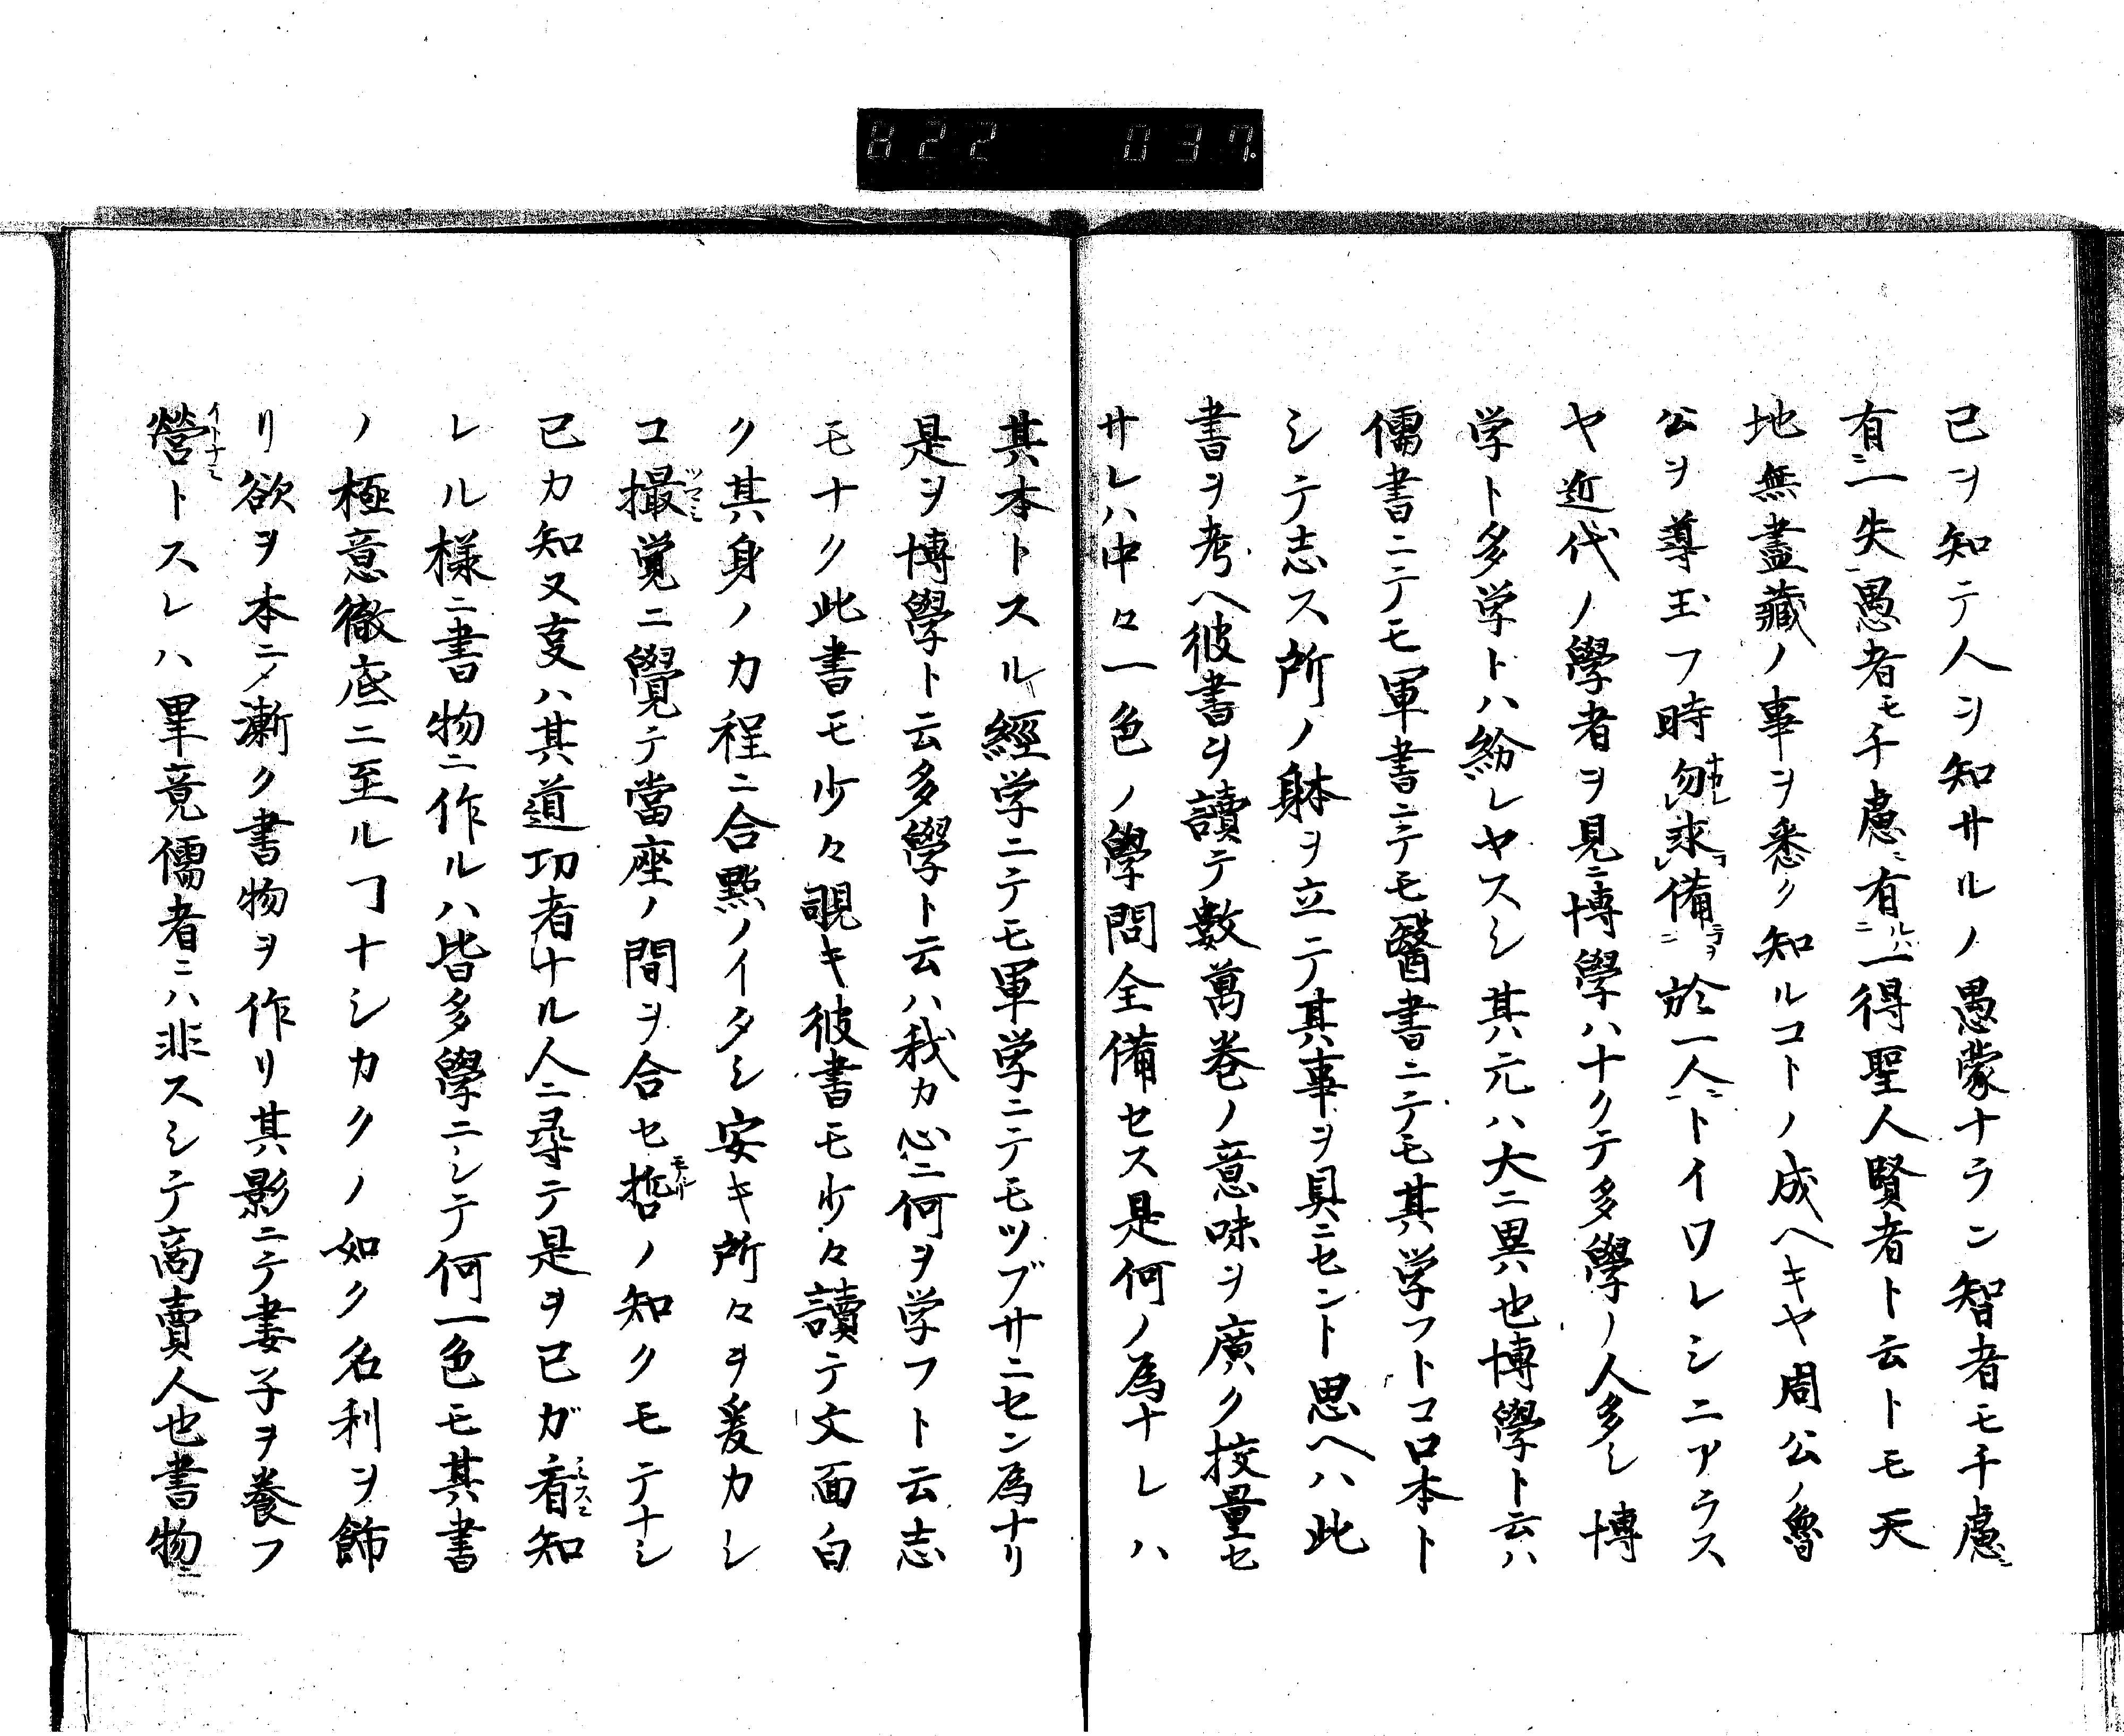 822 037.
已ヲ知テ人ヲ知サルノ愚蒙ナラン智者モ千慮ニ
有ニ一失愚者モ千慮ニ有ルハ二一得聖人賢者ト云トモ天
地無盡藏ノ事ヲ悉ク知ルコトノ成ヘキヤ周公ノ魯
公ヲ導玉フ時勿レ求レ備ラヲ二於一人ニトイワレシニアラス
ヤ近代ノ學者ヲ見ニ博學ハナクテ多學ノ人多シ博
学ト多学トハ紛レヤスシ其元ハ大ニ異也博學ト云ハ
儒書ニテモ軍書ニテモ醫書ニテモ其学フトコロ本ト
シテ志ス所ノ躰ヲ立テ其事ヲ具ニセント思ヘハ此
書ヲ考ヘ彼書ヲ讀テ數萬巻ノ意味ヲ廣ク挍量セ
サレハ中々一色ノ學問全備セス是何ノ為ナレハ
其本トスル經学ニテモ軍学ニテモツブサニセン為ナリ
是ヲ博學ト云多學ト云ハ我カ心ニ何ヲ学フト云志
モナク此書モ少々覗キ彼書モ少々讀テ文面ノ白
ク其身ノカ程ニ合點ノイタシ安キ所々ヲ爰カシ
コ撮覚ニ覺テ當座ノ間ヲ合セ哲ノ知クモテナシ
已カ知又㕝ハ其道功者ナル人ニ尋テ是ヲ已ガ看知
レル様ニ書物ニ作ルハ皆多學ニシテ何一色モ其書
ノ極意徹底ニ至ルヿナシカクノ如ク名利ヲ飾
リ欲ヲ本ニノ漸ク書物ヲ作リ其影ニテ妻子ヲ養フ
營トスレハ畢竟儒者ニハ非スシテ商賣人也書物ニ